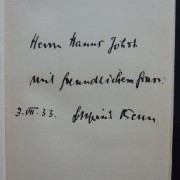 Herrn Hanns Johst
mit freundlichem Gruss.
3. VII. 33. Gottfried Benn.